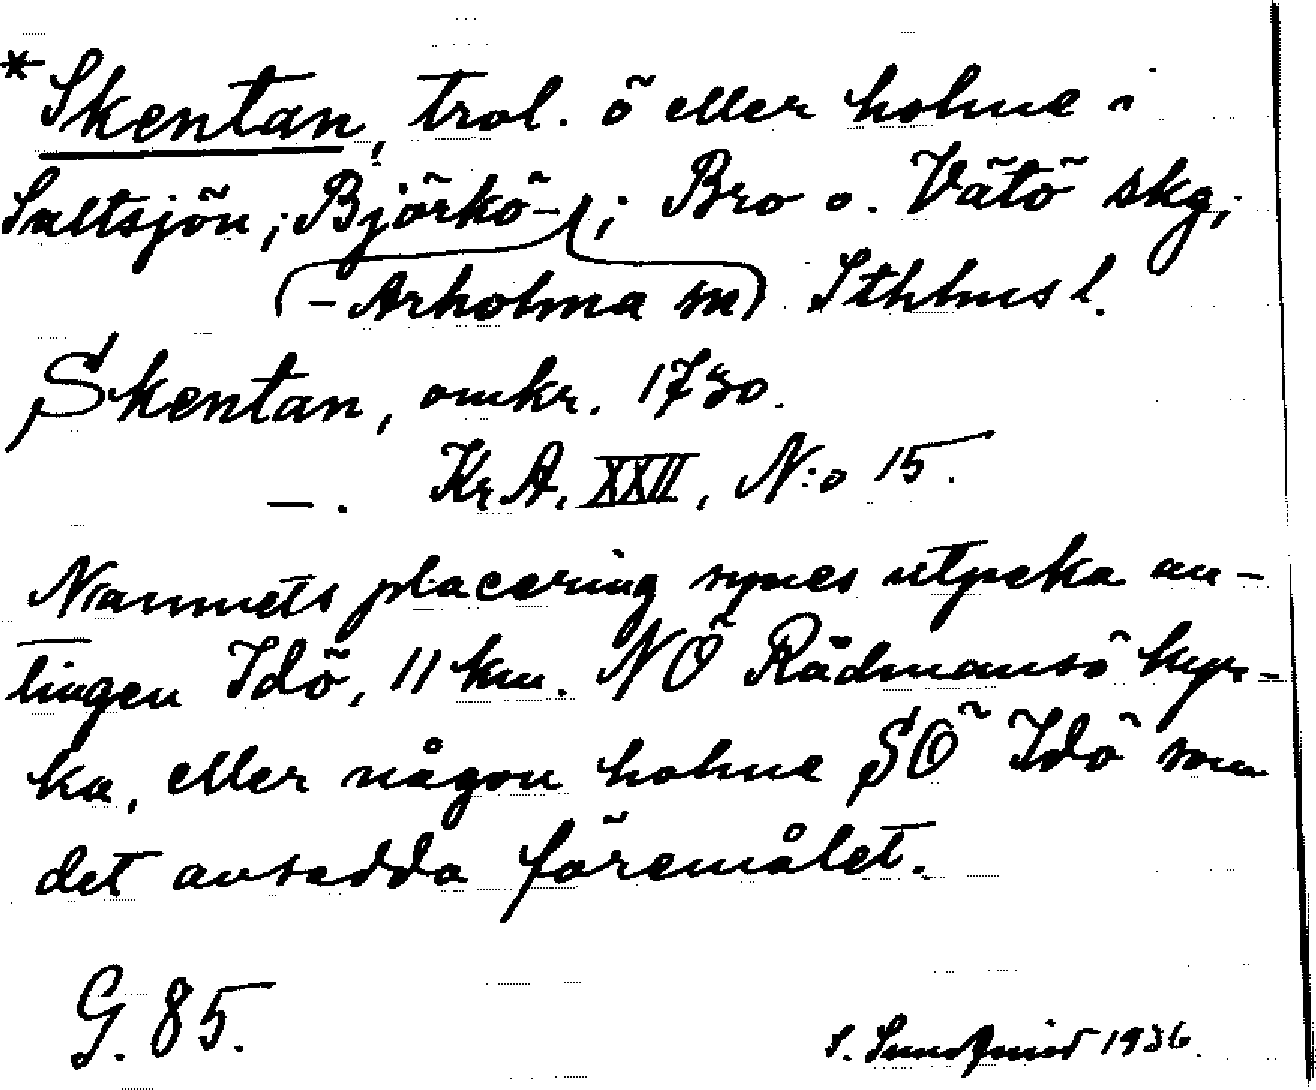 *Skentan, trol. ö eller holme i
Saltsjön; Björkö-; Bro o. Vätö skg,
(-Arholma sn) Sthlms l.
Skentan, omkr. 1730.
—. Kr. A. XXII, N:o 15.
Namnets placering synes utpeka an-
tingen Idö, 11 km. NÖ Rådmansö kyr-
ka, eller någon holme SÖ Idö som
det avsedda föremålet.
G. 85.
S. Sundqvist 1936.